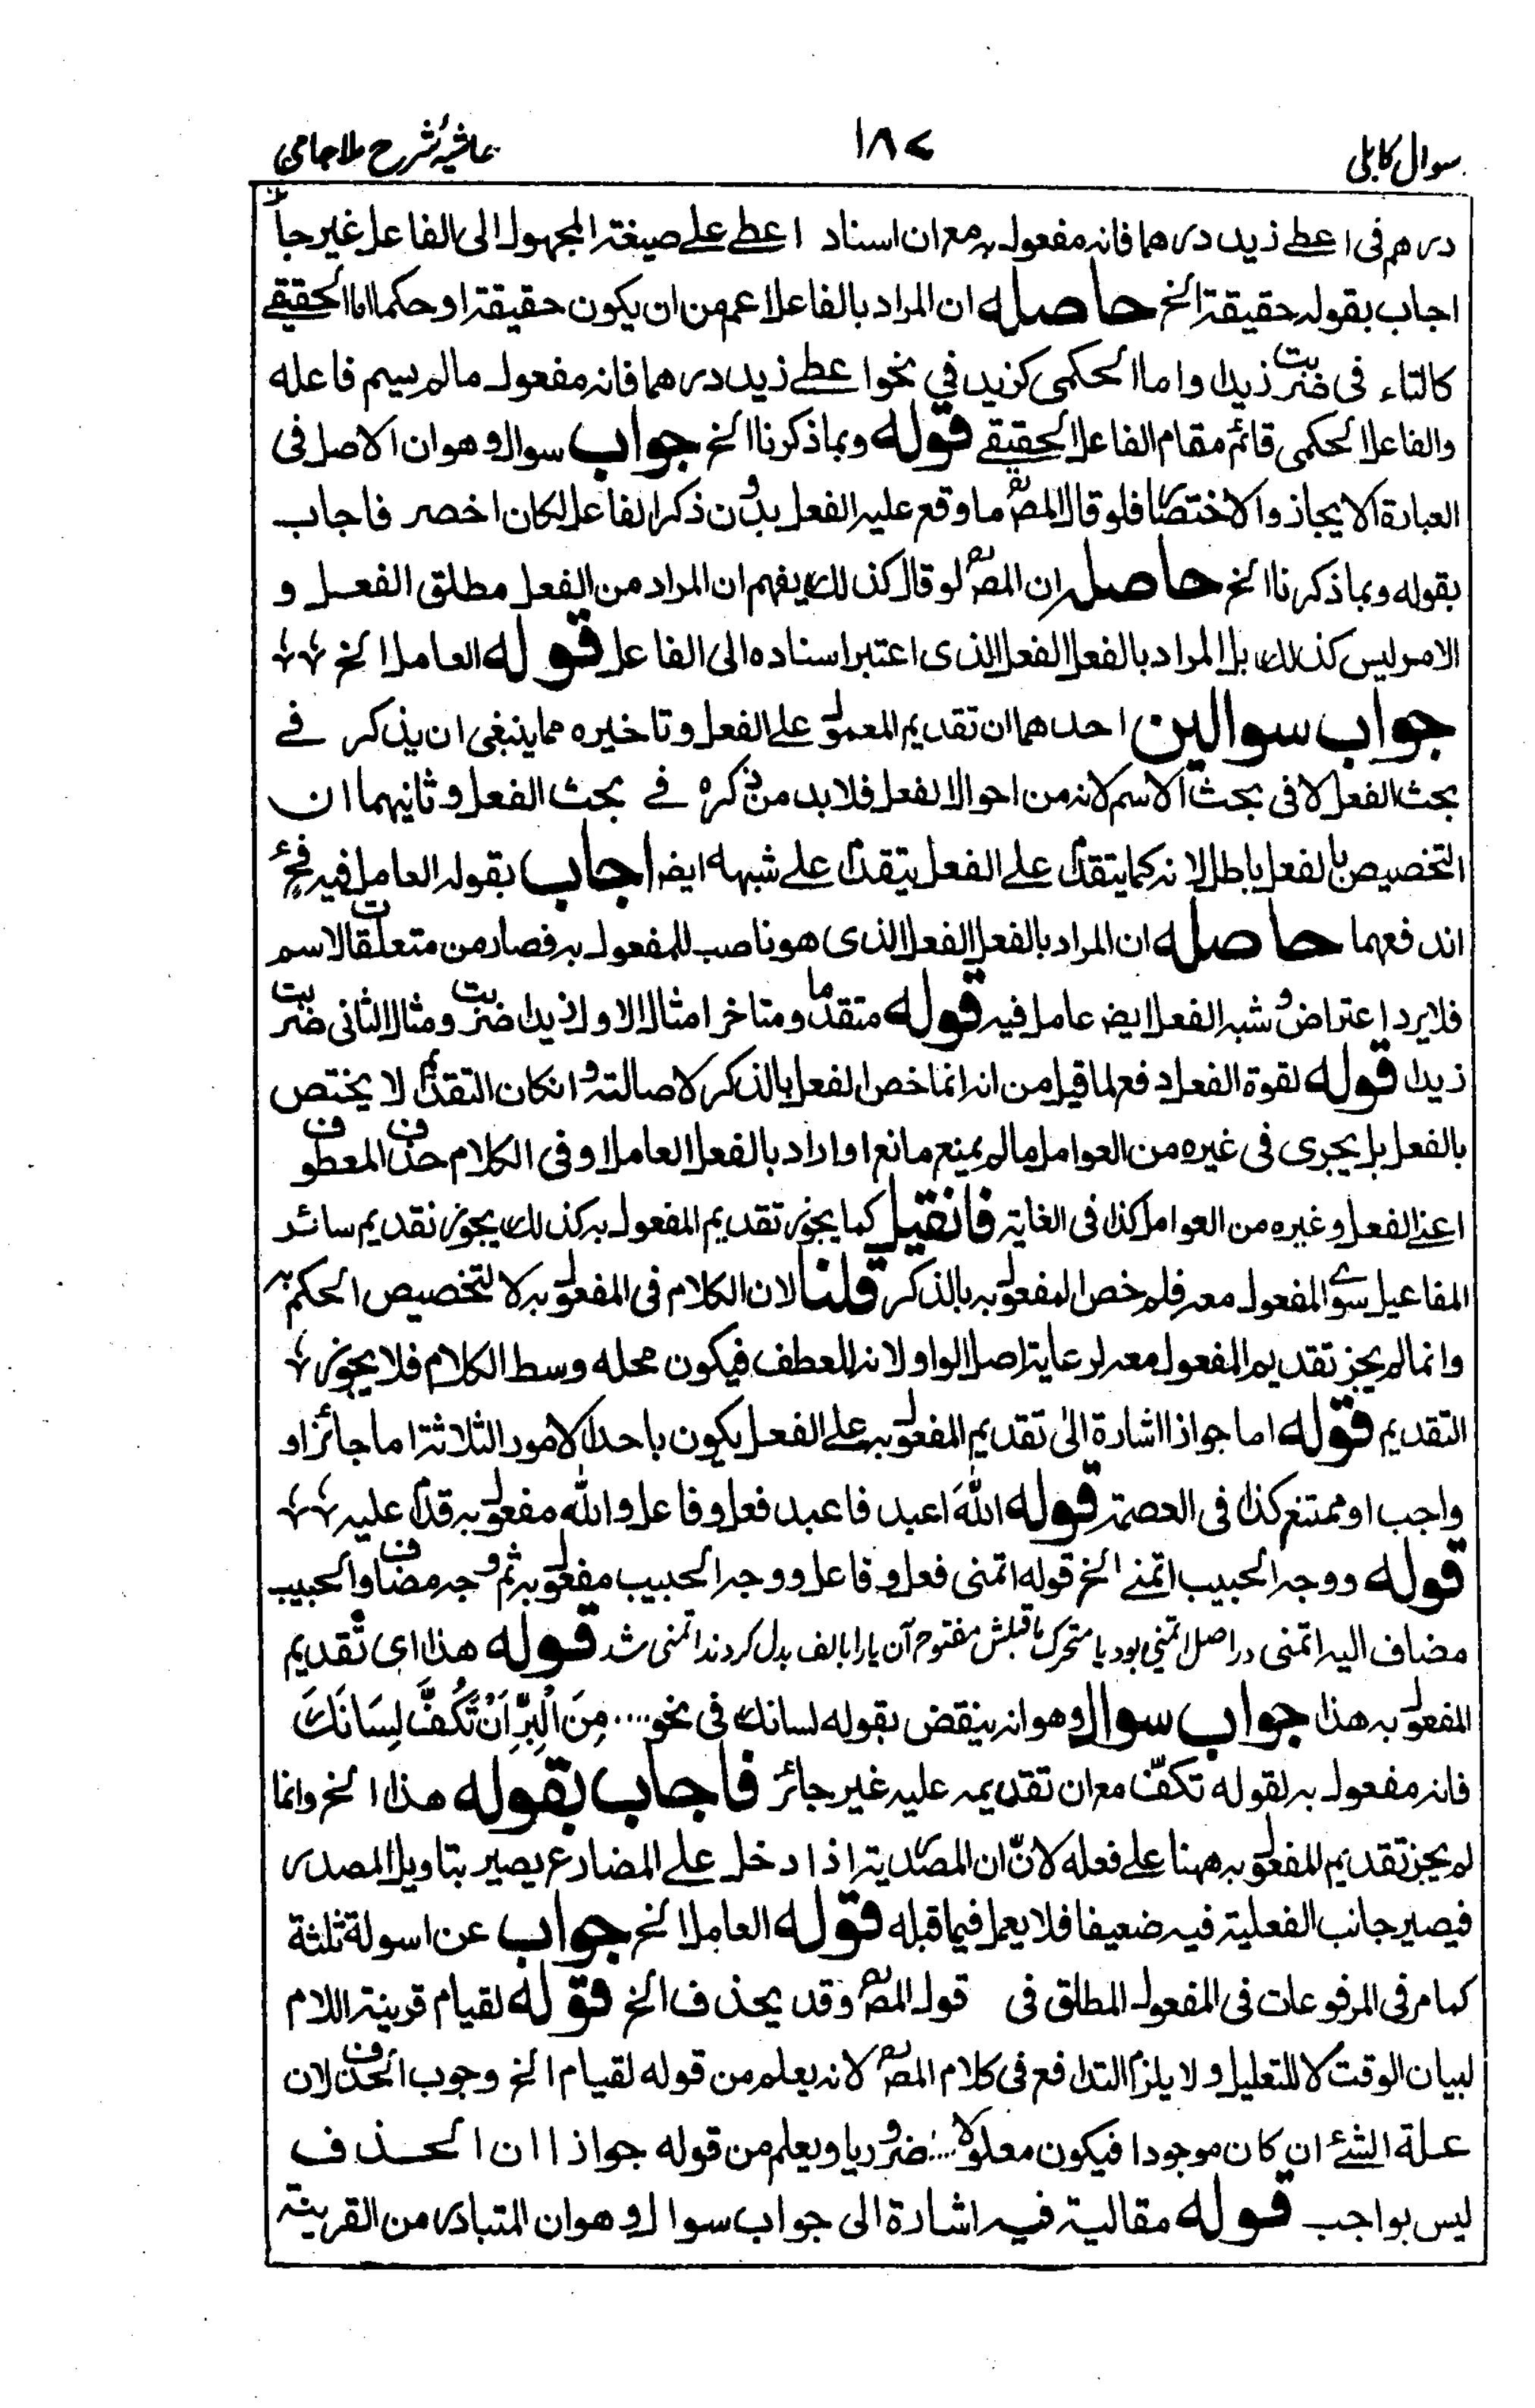 سوال کابلی ١٨٧ حاشیۂ شرح ملا جامی
درهم فی اعطے زید درهما فانه مفعول به مع ان اسناد اعطے علے صیغة المجهول الی الفاعل غیر جائز
اجاب بقوله حقیقة الخ حاصله ان المراد بالفاعل اعم من ان یکون حقیقة او حکما اما الحقیقے
کالتاء فی ضربت زیدا واما الحکمی کزید فی نحو اعطے زید درهما فانه مفعول ما لم یسم فاعله
والفاعل الحکمی قائم مقام الفاعل الحقیقے قوله وبما ذکرنا الخ جواب سوال وهو ان الاصل فی
العبارة الایجاز والاختصار فلو قال المصؒ ما وقع علیه الفعل بدون ذکر الفاعل لکان اخصر فاجاب
بقوله وبما ذکرنا الخ حاصله ان المصؒ لو قال کذلك یفهم ان المراد من الفعل مطلق الفعل و
الامر لیس کذلك بل المراد بالفعل الفعل الذی اعتبر اسناده الی الفاعل قوله العامل الخ
جواب سوالین احدهما ان تقدیم المعمول علے الفعل وتاخیره مما ینبغی ان یذکر فے
بحث الفعل لا فی بحث الاسم لانه من احوال الفعل فلا بد من ذکره فے بحث الفعل وثانیهما ان
التخصیص بالفعل باطل لانه کما یتقدم علے الفعل یتقدم علے شبهه ایضا اجاب بقوله العامل فیه فح
اندفعهما حاصله ان المراد بالفعل الفعل الذی هو ناصب للمفعول به فصار من متعلقات الاسم
فلا یرد اعتراض وشبه الفعل ایض عامل فیه قوله متقدما ومتاخرا مثال الاول زیدا ضربت ومثال الثانی ضربت
زیدا قوله لقوة الفعل دفع لما قیل من انه انما خص الفعل بالذکر لاصالته وانکان التقدم لا یختص
بالفعل بل یجری فی غیره من العوامل ما لم یمنع مانع او اراد بالفعل العامل او فی الکلام حذف المعطوف
اعنے الفعل وغیره من العوامل کذا فی الغایة فانقیل کما یجوز تقدیم المفعول به کذلك یجوز تقدیم سائر
المفاعیل سوے المفعول معه فلم خص المفعول به بالذکر قلنا لان الکلام فی المفعول به لا لتخصیص الحکم به
وانما لم یجز تقدیم المفعول معه لرعایة اصل الواو لانه للعطف فیکون محله وسط الکلام فلا یجوز
التقدیم قوله اما جوازا اشارة الی تقدیم المفعول به علے الفعل یکون باحد الامور الثلاثة اما جائز او
واجب او ممتنع کذا فی العصمة قوله اللهَ اعبد فاعبد فعل وفاعل والله مفعول به قدم علیه
قوله ووجه الحبیب اتمنے الخ قوله اتمنی فعل وفاعل ووجه الحبیب مفعول به ثم وجه مضاف والحبیب
مضاف الیه اتمنی در اصل اتمنی بود یا متحرک ما قبلش مفتوح آن یا را بالف بدل کردند اتمنی شد قوله هذا ای تقدیم
المفعول به هذا جواب سوال وهو انه ینقض بقوله لسانك فی نحو .... مِنَ الْبِرِّ اَنْ تَکُفَّ لِسَانَكَ
فانه مفعول به لقوله تکفّ مع ان تقدیمه علیه غیر جائز فاجاب بقوله هذا الخ وانما
لم یجز تقدیم المفعول به ههنا علے فعله لانّ ان المصدریة اذا دخل علے المضارع یصیر بتاویل المصدر
فیصیر جانب الفعلیة فیه ضعیفا فلا یعمل فیما قبله قوله العامل الخ جواب عن اسولة ثلثة
کما مر فی المرفوعات فی المفعول المطلق فی قول المصؒ وقد یحذف الخ قوله لقیام قرینة اللام
لبیان الوقت لا للتعلیل ولا یلزم التدافع فی کلام المصؒ لانه یعلم من قوله لقیام الخ وجوب الحذف لان
علة الشئ ان کان موجودا فیکون معلوله ... ضروریا ویعلم من قوله جوازا ان الحذف
لیس بواجب قوله مقالیة فیه اشارة الی جواب سوال وهو ان المتبادر من القرینة